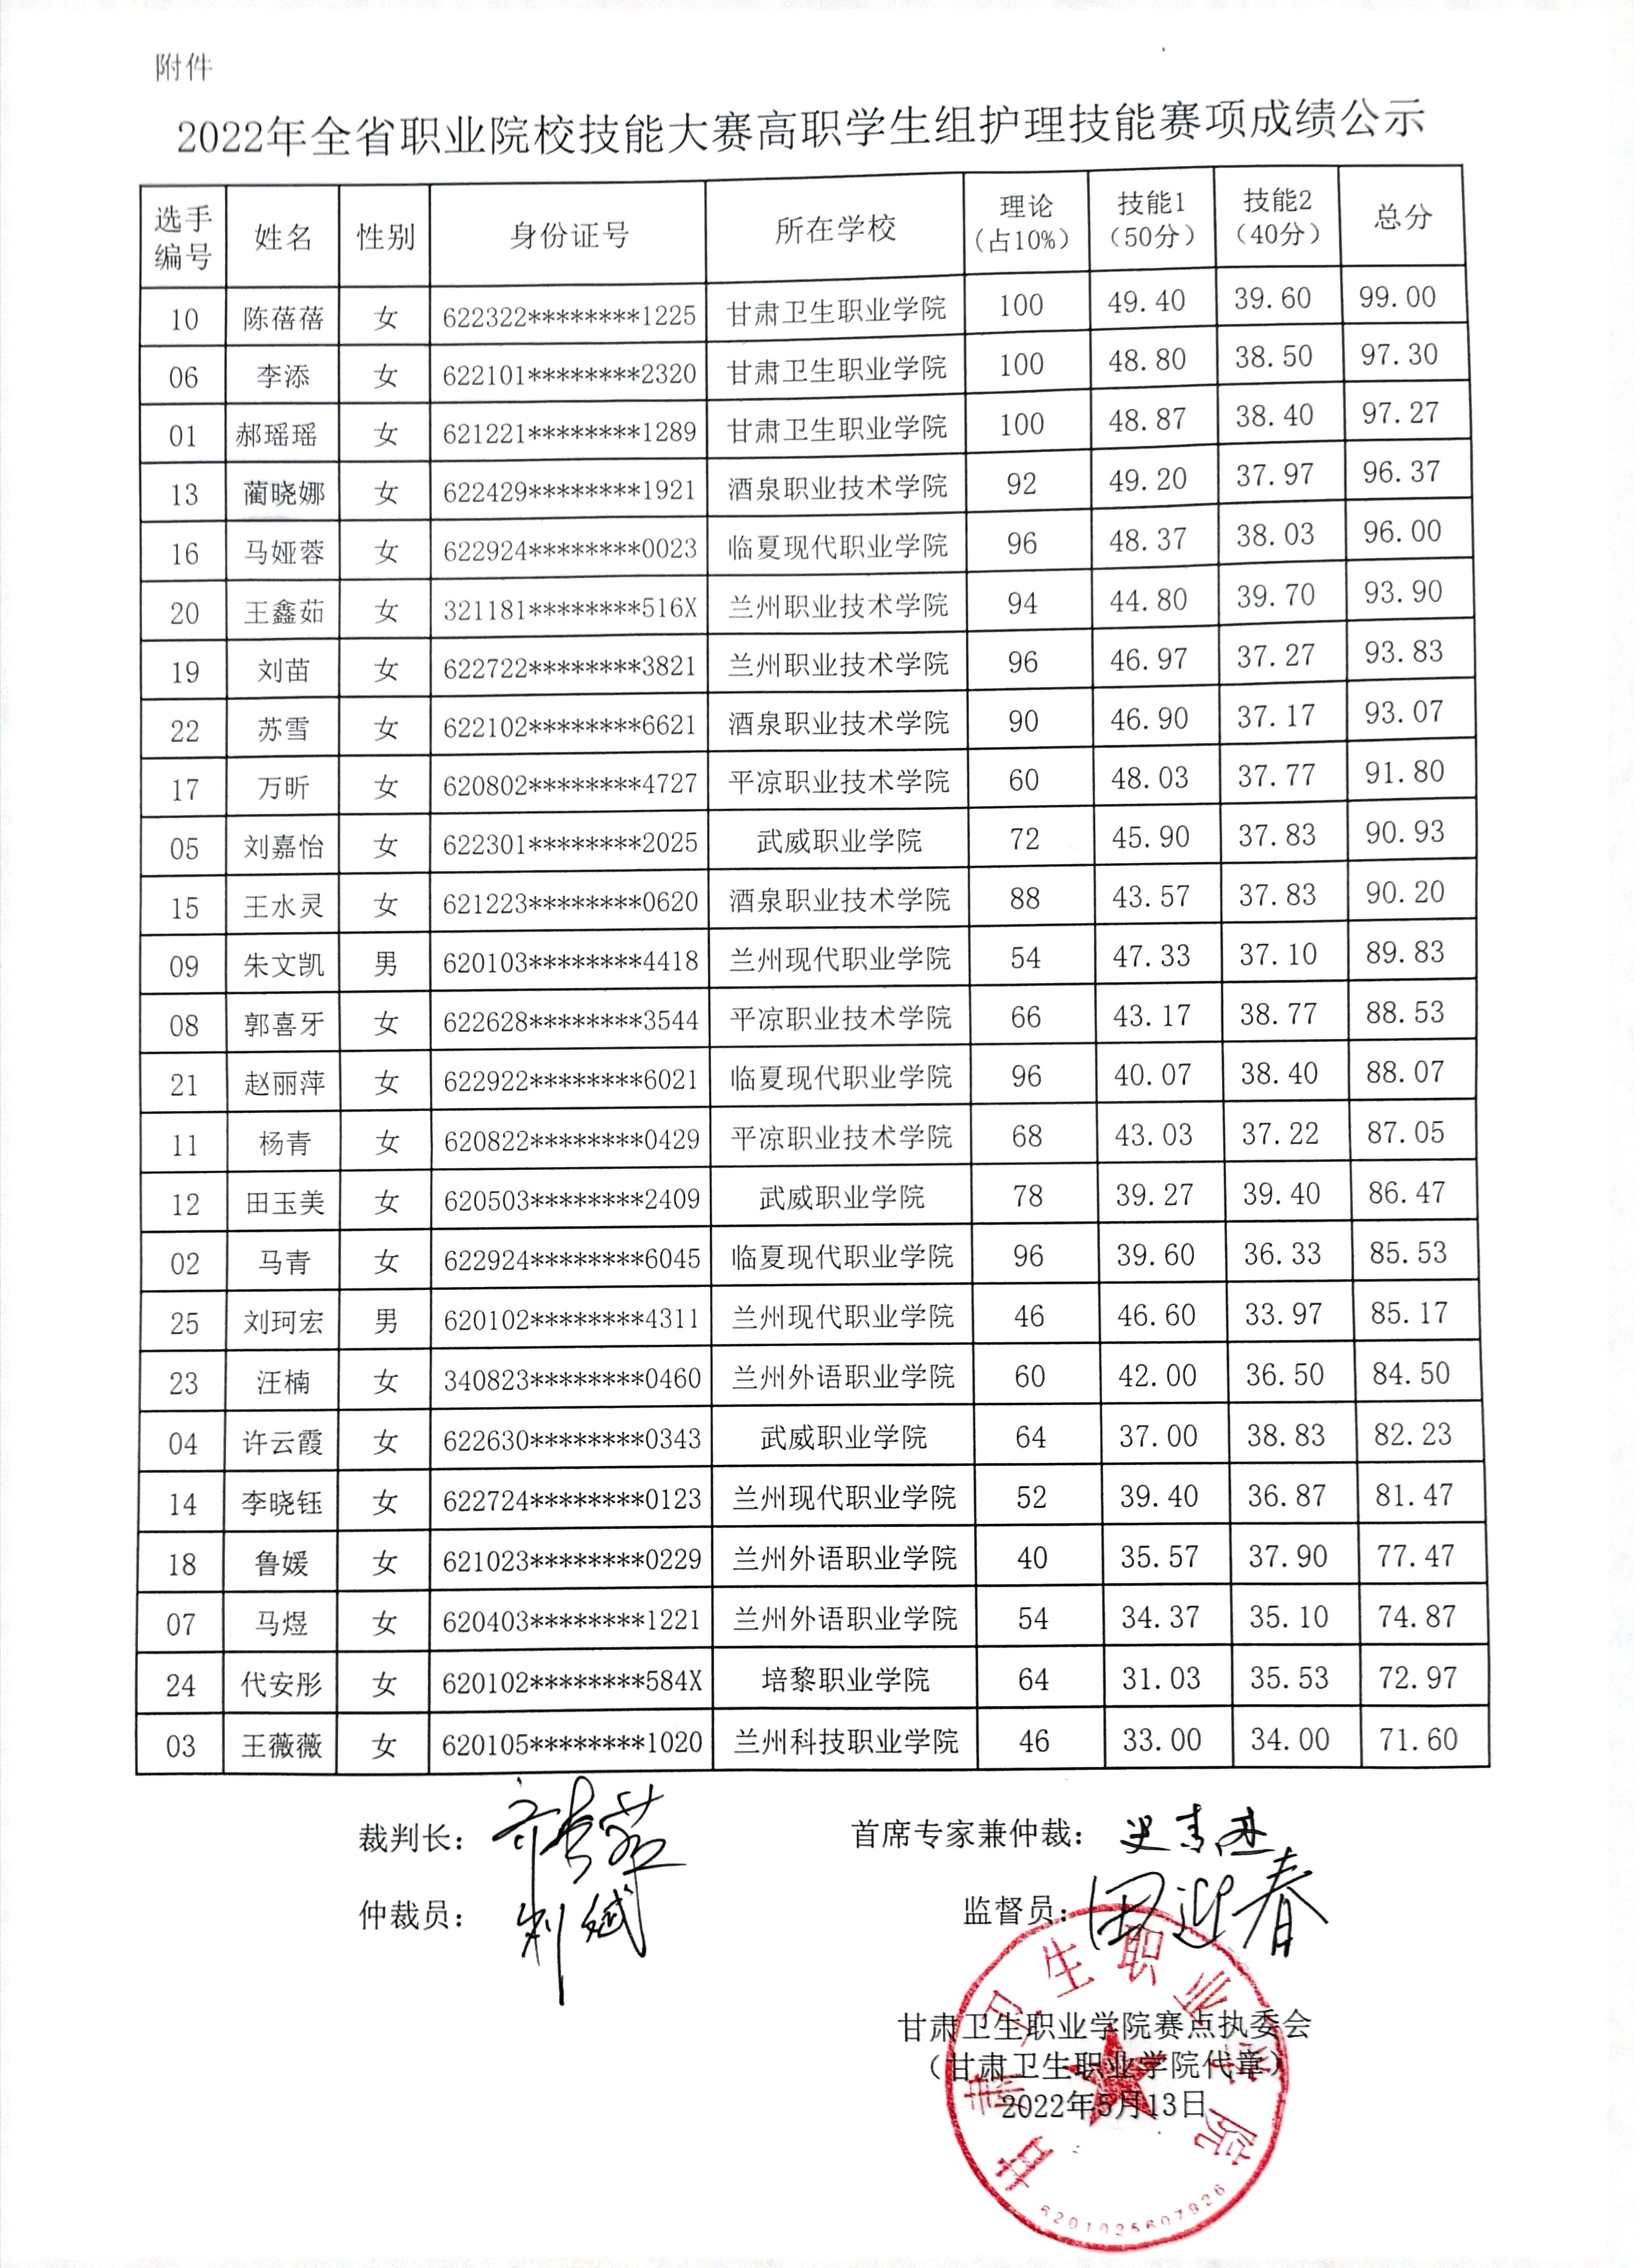 附件
2022年全省职业院校技能大赛高职学生组护理技能赛项成绩公示
选手编号 姓名 性别 身份证号 所在学校 理论（占10%） 技能1（50分） 技能2（40分） 总分
10 陈蓓蓓 女 622322********1225 甘肃卫生职业学院 100 49.40 39.60 99.00
06 李添 女 622101********2320 甘肃卫生职业学院 100 48.80 38.50 97.30
01 郝瑶瑶 女 621221********1289 甘肃卫生职业学院 100 48.87 38.40 97.27
13 蔺晓娜 女 622429********1921 酒泉职业技术学院 92 49.20 37.97 96.37
16 马娅蓉 女 622924********0023 临夏现代职业学院 96 48.37 38.03 96.00
20 王鑫茹 女 321181********516X 兰州职业技术学院 94 44.80 39.70 93.90
19 刘苗 女 622722********3821 兰州职业技术学院 96 46.97 37.27 93.83
22 苏雪 女 622102********6621 酒泉职业技术学院 90 46.90 37.17 93.07
17 万昕 女 620802********4727 平凉职业技术学院 60 48.03 37.77 91.80
05 刘嘉怡 女 622301********2025 武威职业学院 72 45.90 37.83 90.93
15 王水灵 女 621223********0620 酒泉职业技术学院 88 43.57 37.83 90.20
09 朱文凯 男 620103********4418 兰州现代职业学院 54 47.33 37.10 89.83
08 郭喜牙 女 622628********3544 平凉职业技术学院 66 43.17 38.77 88.53
21 赵丽萍 女 622922********6021 临夏现代职业学院 96 40.07 38.40 88.07
11 杨青 女 620822********0429 平凉职业技术学院 68 43.03 37.22 87.05
12 田玉美 女 620503********2409 武威职业学院 78 39.27 39.40 86.47
02 马青 女 622924********6045 临夏现代职业学院 96 39.60 36.33 85.53
25 刘珂宏 男 620102********4311 兰州现代职业学院 46 46.60 33.97 85.17
23 汪楠 女 340823********0460 兰州外语职业学院 60 42.00 36.50 84.50
04 许云霞 女 622630********0343 武威职业学院 64 37.00 38.83 82.23
14 李晓钰 女 622724********0123 兰州现代职业学院 52 39.40 36.87 81.47
18 鲁媛 女 621023********0229 兰州外语职业学院 40 35.57 37.90 77.47
07 马煜 女 620403********1221 兰州外语职业学院 54 34.37 35.10 74.87
24 代安彤 女 620102********584X 培黎职业学院 64 31.03 35.53 72.97
03 王薇薇 女 620105********1020 兰州科技职业学院 46 33.00 34.00 71.60
裁判长： 首席专家兼仲裁：
仲裁员： 监督员：田迎春
甘肃卫生职业学院赛点执委会
（甘肃卫生职业学院代章）
2022年5月13日
甘肃卫生职业学院
6201025607926